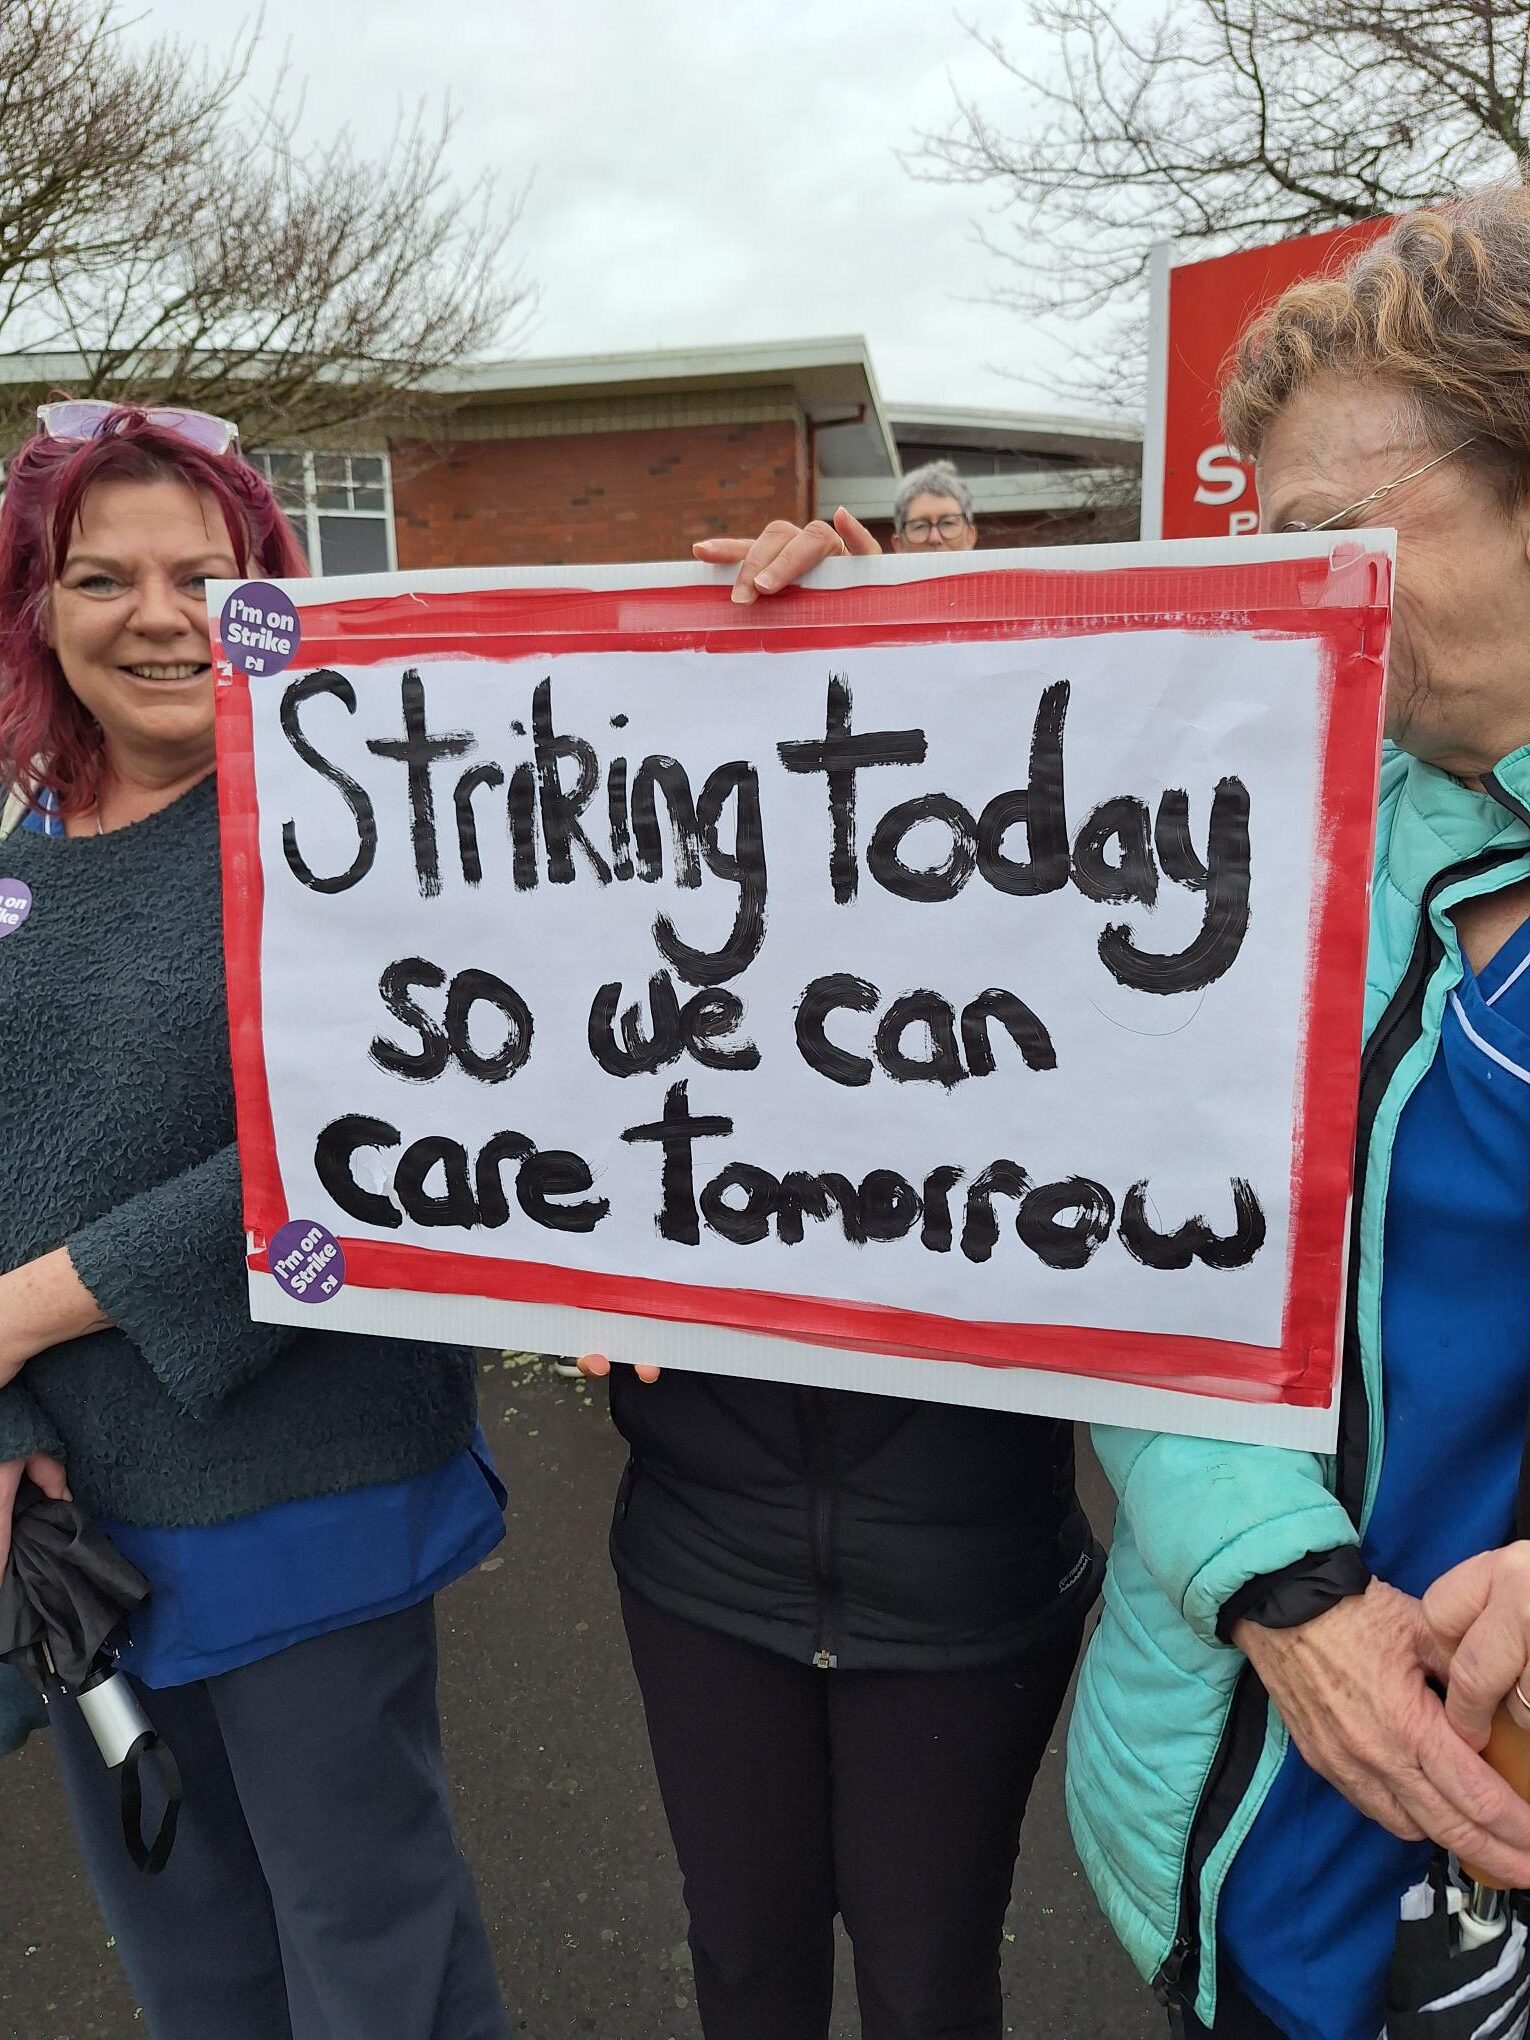 I'm on
Strike
Striking today
so we can
care tomorrow
I'm on
Strike